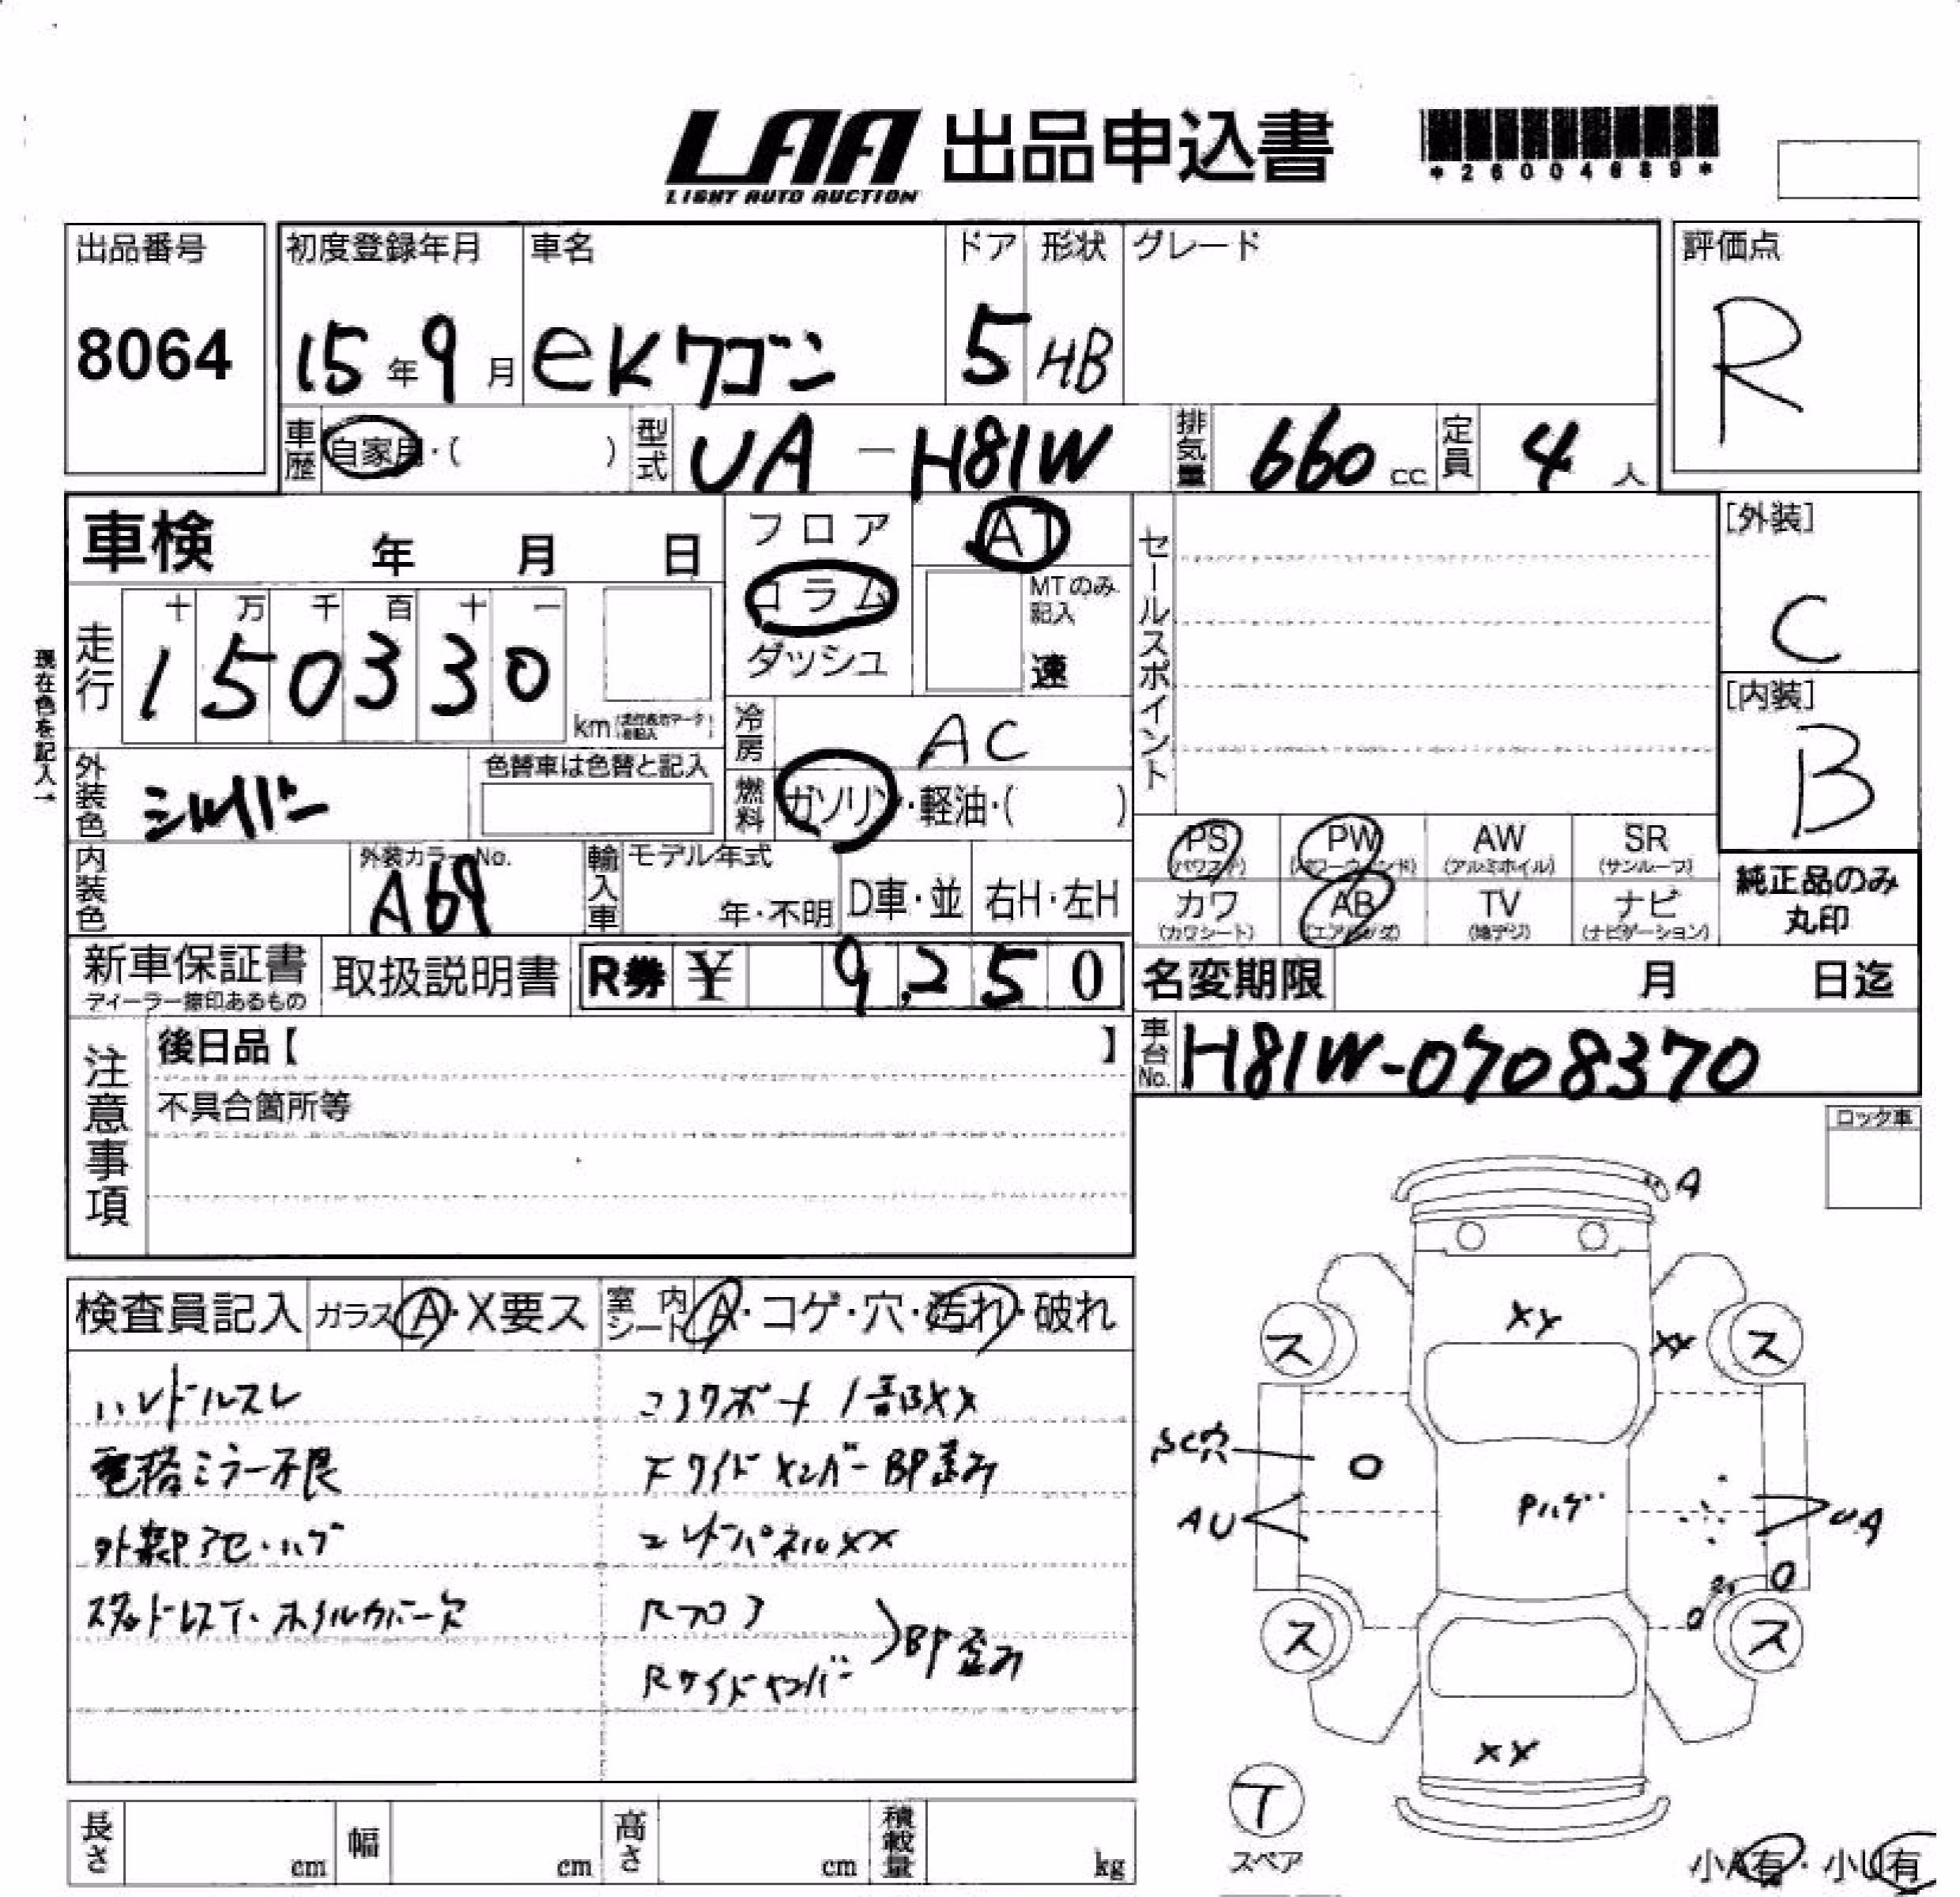 LAA 出品申込書
LIGHT AUTO AUCTION
*26004689*
出品番号 初度登録年月 車名 ドア 形状 グレード 評価点
8064 15年9月 eKワゴン 5 HB R
車歴 自家用・( ) 型式 UA-H81W 排気量 660 cc 定員 4 人
車検 年 月 日
フロア AT
コラム MTのみ記入
ダッシュ 速
セールスポイント
[外装]
C
[内装]
B
現在色を記入→
走行 十 万 千 百 十 一
150330 km
冷房 AC
外装色 シルバー 色替車は色替と記入
燃料 ガソリン・軽油・( )
内装色 外装カラーNo. A69
輸入車 モデル年式 年・不明 D車・並 右H・左H
PS (パワステ) PW (パワーウィンド) AW (アルミホイル) SR (サンルーフ)
カワ (カワシート) AB (エアバッグ) TV (地デジ) ナビ (ナビゲーション)
純正品のみ
丸印
新車保証書 取扱説明書 R券 ¥ 9,250
ディーラー捺印あるもの
名変期限 月 日迄
車台No. H81W-0708370
注意事項
後日品【 】
不具合箇所等
ロック車
検査員記入 ガラス A・X要ス 室内シート A・コゲ・穴・汚れ・破れ
ハンドルスレ
電格ミラー不良
外装アセ・ハゲ
スタッドレスT・ホイルカバー欠
コアサポート 1部XX
Fサイドメンバー BP歪み
エンドパネルXX
Rフロア
Rサイドメンバー
BP歪み
A
XX
XX
ス
ス
穴
AU
Pハゲ
UA
ス
ス
XX
T
スペア
小A有・小U有
長さ cm 幅 cm 高さ cm 積載量 kg